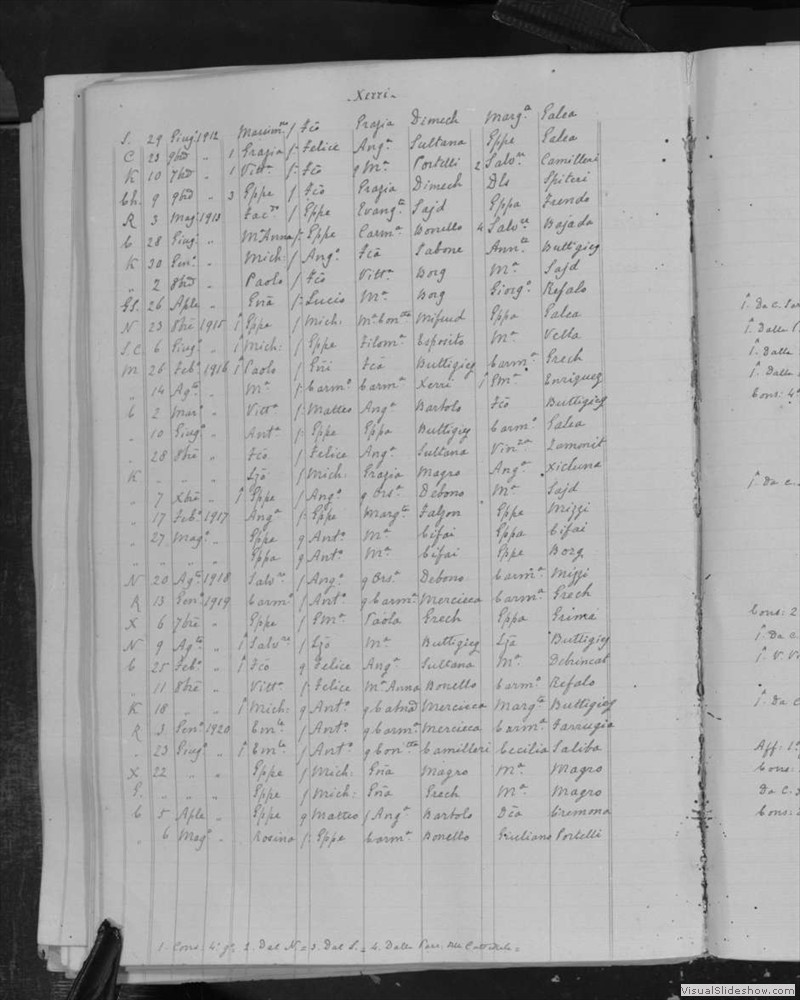 - Xerri -
S. 29 Giug. 1912 Massim.no f Fco Grazia Dimech Marg.a Galea
C 23 9bre " 1 Grazia f. Felice Ang.a Sultana Gppe Galea
K 10 7bre " 1 Vitt.a f. Fco q M.a Portelli 2 Salv.re Camilleri
Ch. 9 9bre " 3 Gppe f Fco Grazia Dimech Dls Spiteri
R 3 Mag. 1913 f Gppe Evang.ta Sajd Gppa Frendo
C 28 Giug. " M.a Anna f. Gppe Carm.a Bonello 4 Salv.re Bajada
K 30 Gen.o " Mich: f Ang.o Fca Tabone Ann.ta Buttigieg
" 2 8bre " Paolo f Fco Vitt.a Borg M.a Sajd
GS. 26 Aple " Gna f. Lucio M.a Borg Giorg.o Refalo
N 23 8bre 1915 1 Gppe f Mich: M.a Con.tta Mifsud Gppa Galea
S.C. 6 Giug. " 1 Mich: f Gppe Filom.a Esposito M.a Vella
M 26 Feb.o 1916 1 Paolo f Gni Fca Buttigieg Carm.a Grech
" 14 Ag.to " M.a f. Carm.o Carm.a Xerri 1 Em.a Enriquez
C 2 Mar.o " Vitt.a f. Matteo Ang.a Bartolo Fco Buttigieg
" 10 Giug.o " Ant.a f. Gppe Gppa Buttigieg Carm.o Galea
" 28 8bre " Fco f Felice Ang.a Sultana Vin.za Zammit
K " " " Ljo f Mich: Grazia Magro Ang.a Xicluna
" 7 Xbre " 1 Gppe f Ang.o q Ors.a Debono M.a Sajd
" 17 Feb.o 1917 Ang.a f. Gppe Marg.ta Falzon Gppe Mizzi
" 27 Mag.o " Gppe q Ant.o M.a Cifai Gppa Cifai
" " " " Gppa q Ant.o M.a Cifai Gppe Borg
N 20 Ag.to 1918 Salv.re f Ang.o q Ors.a Debono Carm.a Mizzi
R 13 Gen.o 1919 Carm.o f Ant.o q Carm.a Mercieca Carm.a Grech
X 6 7bre " Gppe f Em.o Paola Grech Gppa Grima
N 9 Ag.to " 1 Salv.re f Ljo M.a Buttigieg Lja Buttigieg
C 25 Feb.o " 1 Fco q Felice Ang.a Sultana M.a Debrincat
" 11 8bre " Vitt.a f. Felice M.a Anna Bonello Carm.o Refalo
K 18 " " 1 Mich: q Ant.o Mercieca Marg.ta Buttigieg
R 3 Gen.o 1920 Em.le f Ant.o q Carm.a Mercieca Carm.a Farrugia
" 23 Giug.o " 1 Em.le f Ant.o q Con.tta Camilleri Cecilia Saliba
X 22 " " Gppe f Mich: Gna Magro M.a Magro
G. " " " Gppe f Mich: Gna Grech M.a Magro
C 5 Aple " Gppe q Matteo f Ang.a Bartolo Dca Cremona
" 6 Mag.o " Rosina f. Gppe Carm.a Bonello Giuliano Portelli
1. Cons: 4. g. 2. Dal N. = 3. Dal S. = 4. Dalla Parr. della Cattedrale =
1. Da C.
1. Dalla P
1. Dalla
1. Dalla
Cons: 4
1. Da C.
Cons: 2
1. Da C
1. V. Vi
1. Da C
Aff: 1
Cons:
Da C.
Cons:
VisualSlideshow.com